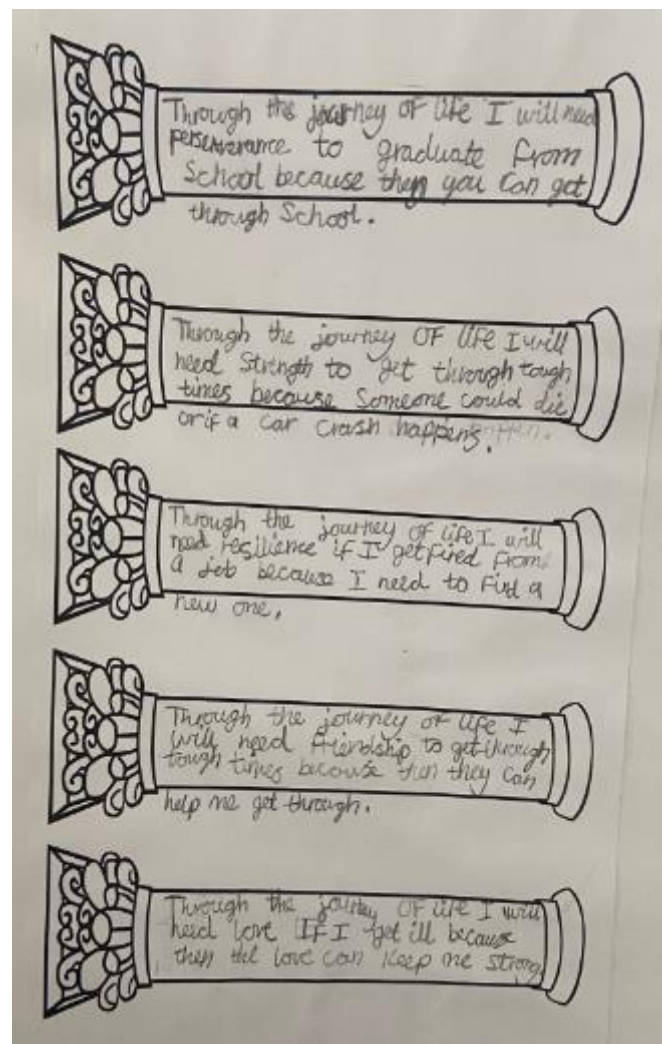 Through the journey of life I will need
perseverance to graduate from
School because then you can get
through School.
Through the journey OF life I will
need Strength to get through tough
times because Someone could die
or if a car crash happens.
Through the journey of life I will
need resilience if I get fired from
a job because I need to find a
new one.
Through the journey of life I
will need friendship to get through
tough times because they can
help me get through.
Through the journey OF life I will
need love IF I get ill because
then the love can keep me strong